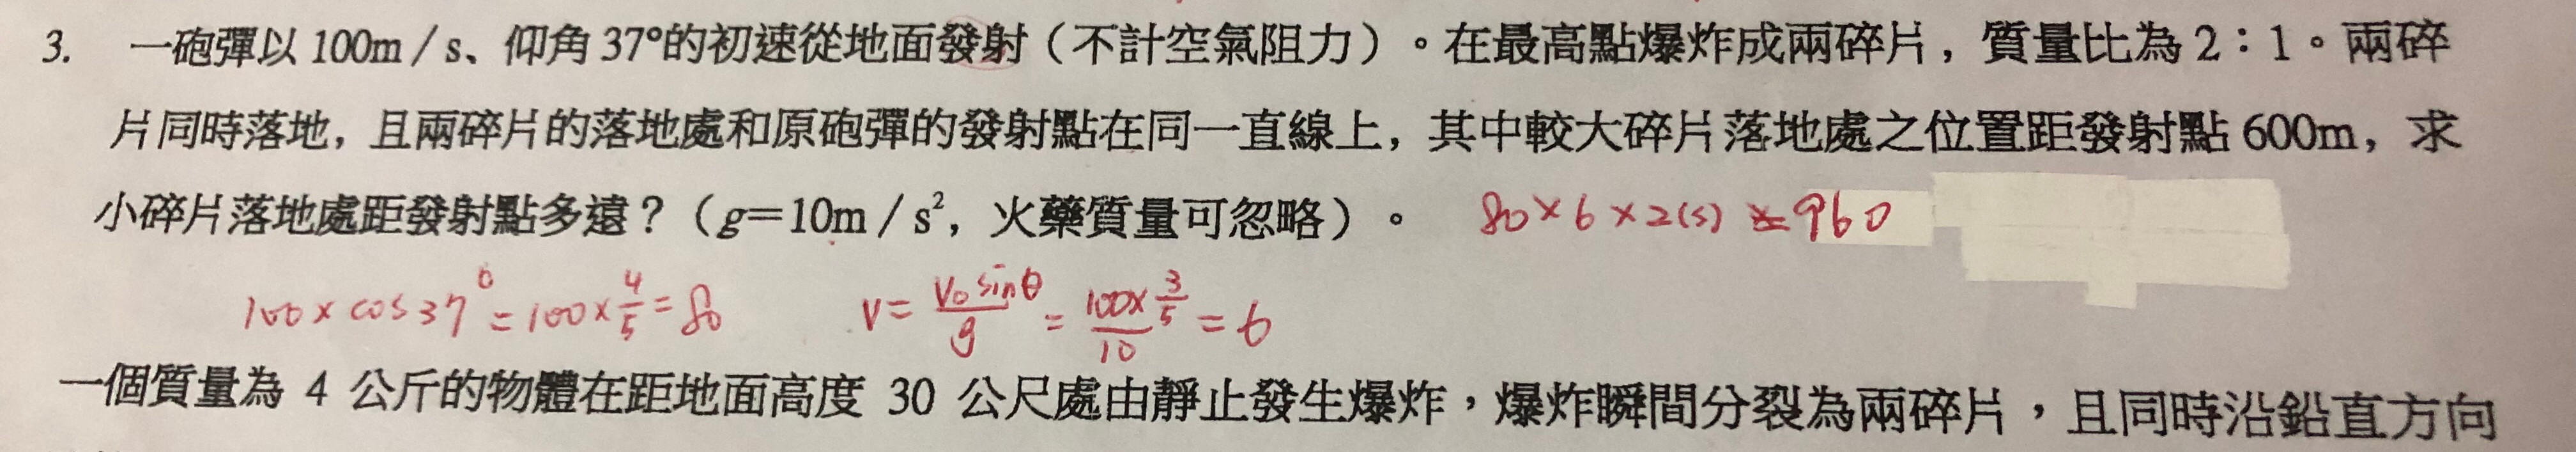 3. 一砲彈以100m/s、仰角37°的初速從地面發射(不計空氣阻力)。在最高點爆炸成兩碎片,質量比為2:1。兩碎
片同時落地,且兩碎片的落地處和原砲彈的發射點在同一直線上,其中較大碎片落地處之位置距發射點600m,求
小碎片落地處距發射點多遠?(g=10m/s²,火藥質量可忽略)。 80×6×2(s)=960
100×cos37°=100×4/5=80 v=V₀sinθ/g=100×3/5/10=6
一個質量為 4 公斤的物體在距地面高度 30 公尺處由靜止發生爆炸,爆炸瞬間分裂為兩碎片,且同時沿鉛直方向